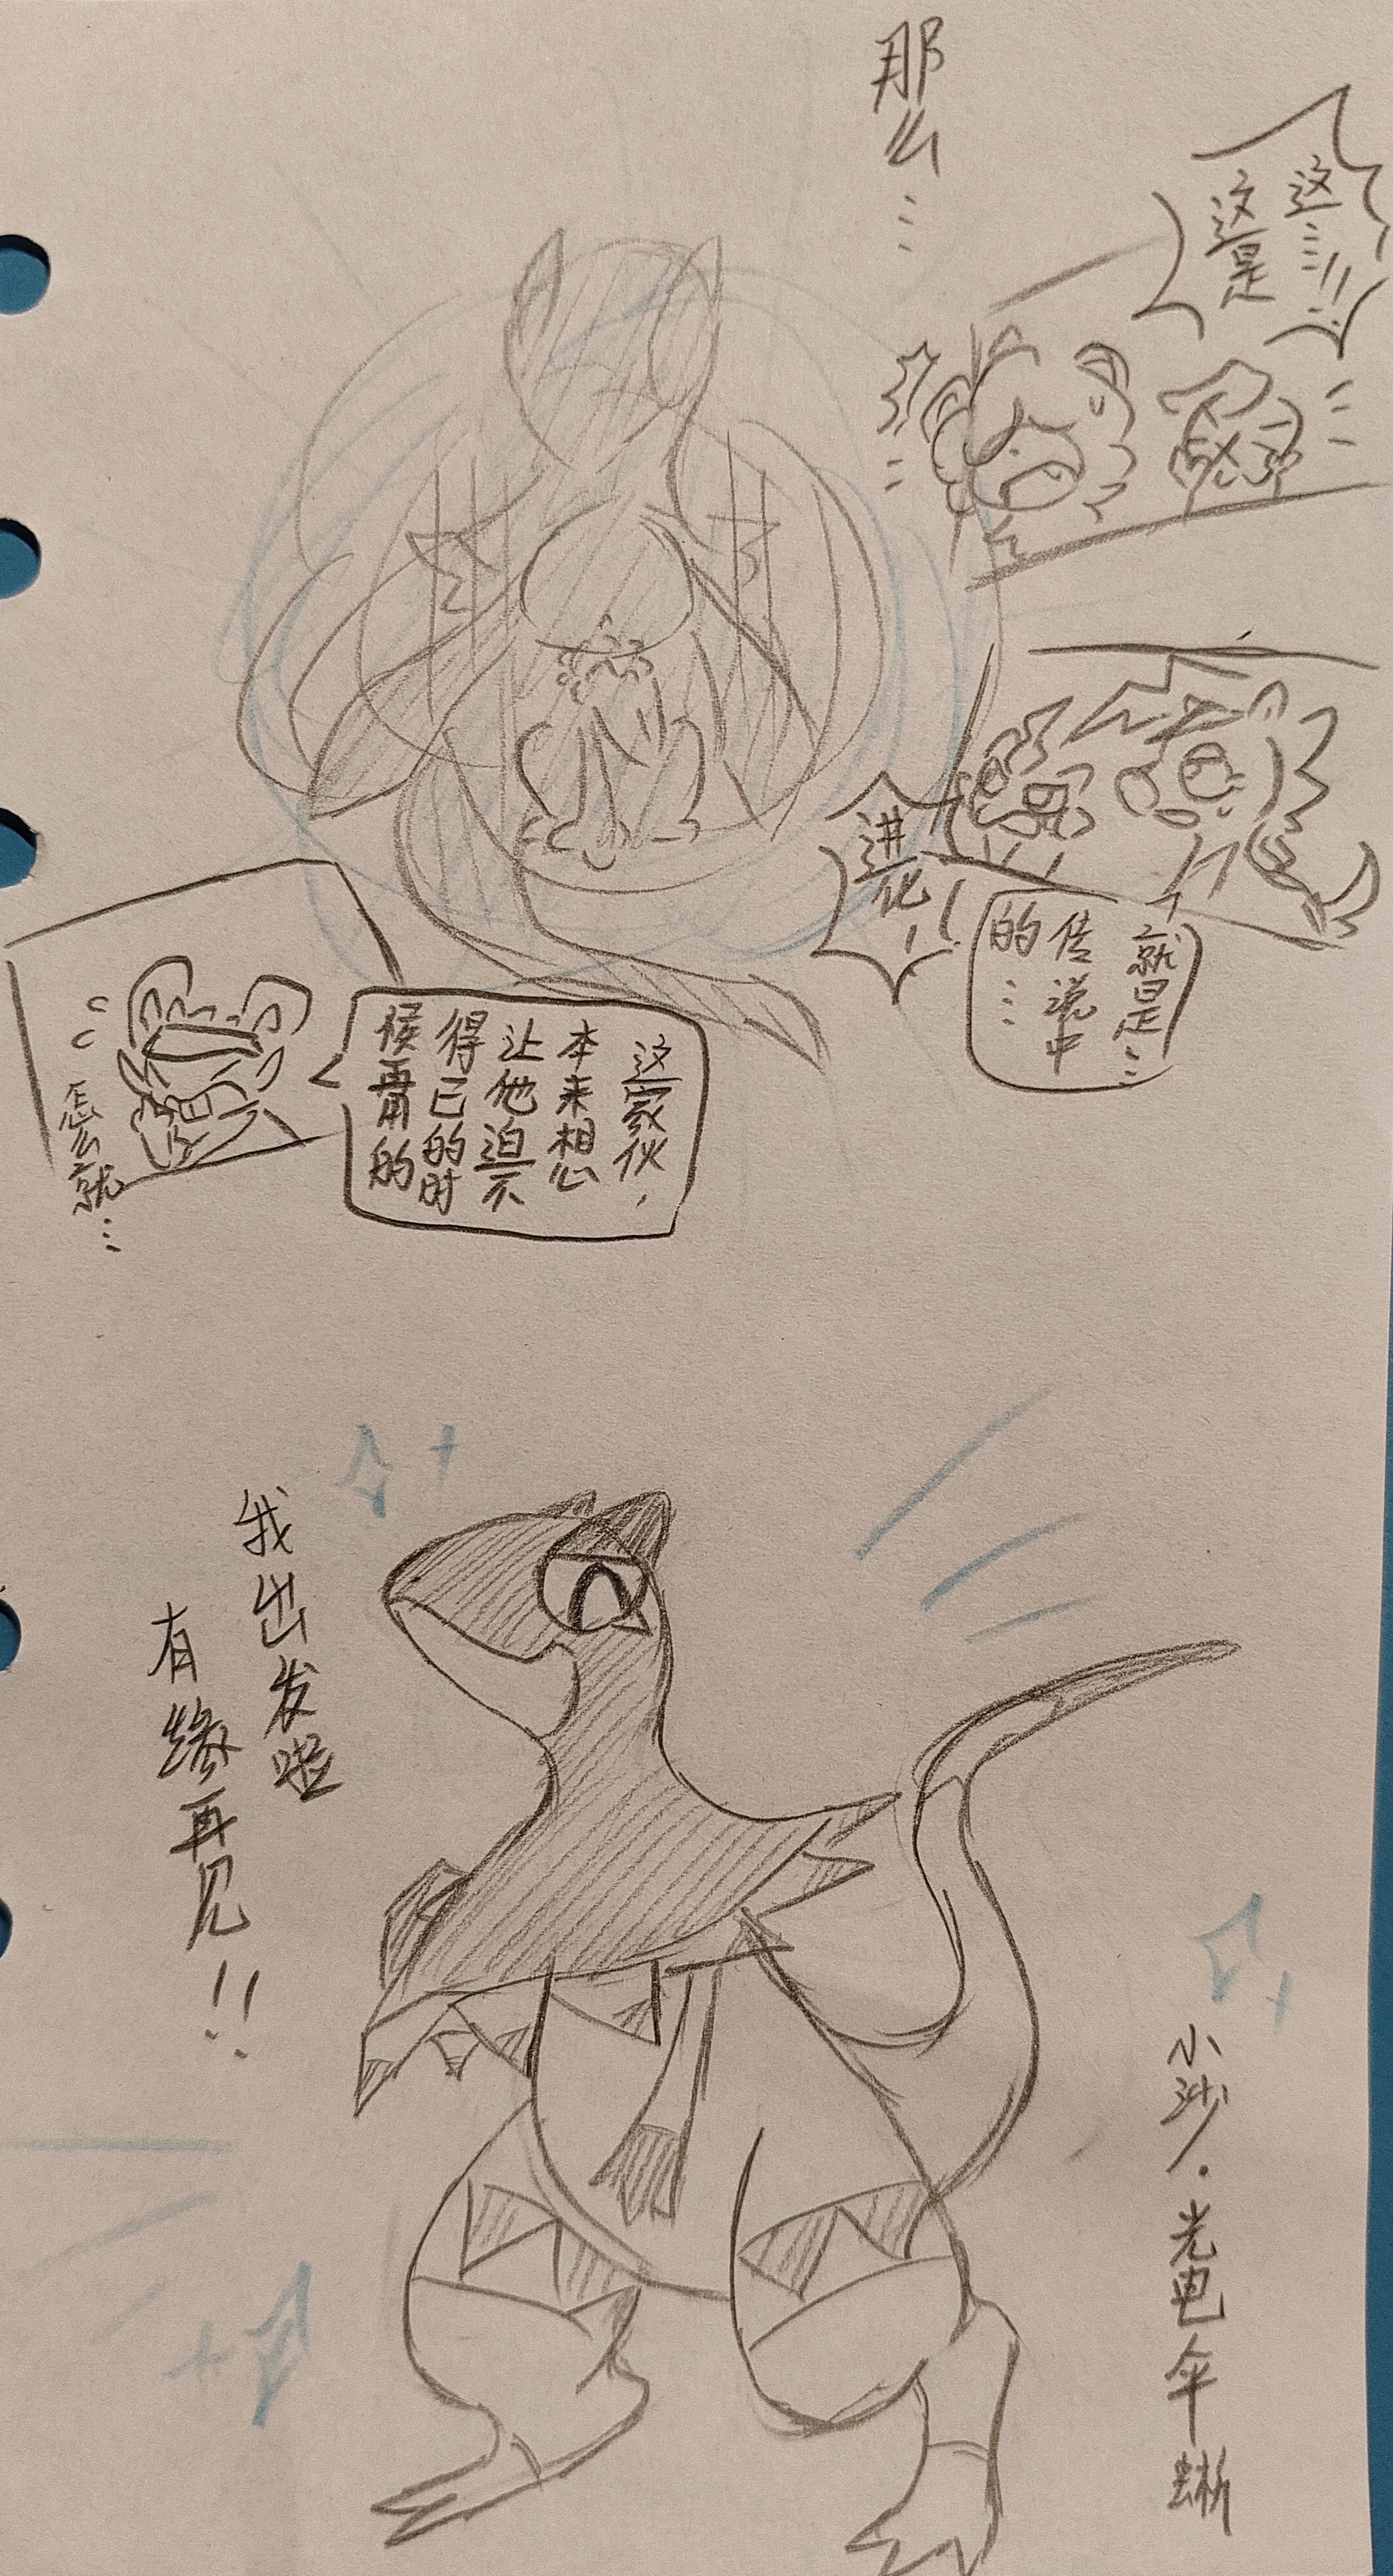 那么…
这…!!
这是
就是…
传说中
的…
进化！
这家伙，
本来想
让他迫不
得已的时
候再用的
怎么就…
我出发啦
有缘再见!!
小沙·光电伞蜥